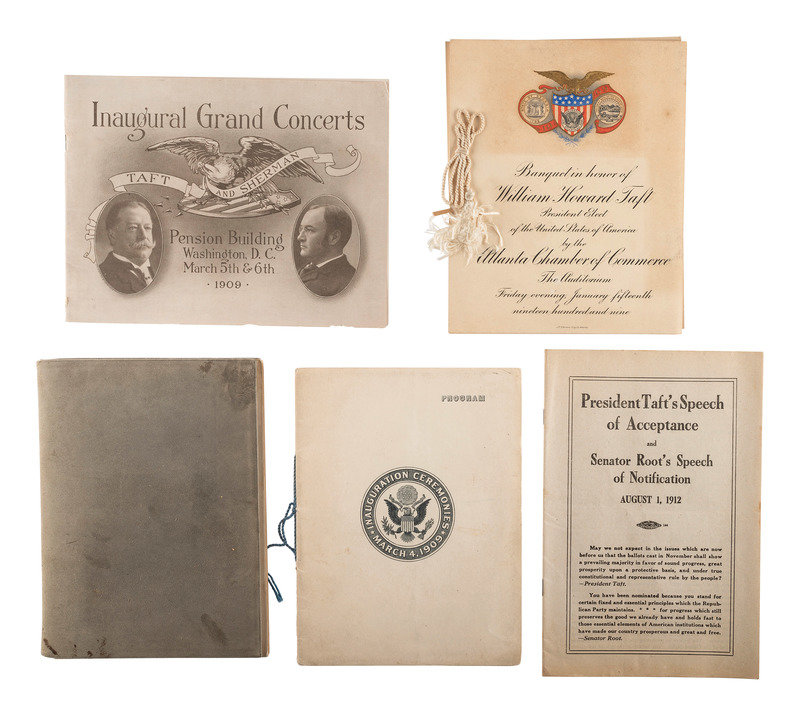 Inaugural Grand Concerts
TAFT AND SHERMAN
Pension Building
Washington, D.C.
March 5th & 6th
· 1909 ·
Banquet in honor of
William Howard Taft
President Elect
of the United States of America
by the
Atlanta Chamber of Commerce
The Auditorium
Friday evening, January fifteenth
nineteen hundred and nine
PROGRAM
INAUGURATION CEREMONIES
MARCH 4, 1909
President Taft's Speech
of Acceptance
and
Senator Root's Speech
of Notification
AUGUST 1, 1912
May we not expect in the issues which are now
before us that the ballots cast in November shall show
a prevailing majority in favor of sound progress, great
prosperity upon a protective basis, and under true
constitutional and representative rule by the people?
—President Taft.
You have been nominated because you stand for
certain fixed and essential principles which the Repub-
lican Party maintains. * * * for progress which still
preserves the good we already have and holds fast to
those essential elements of American institutions which
have made our country prosperous and great and free.
—Senator Root.